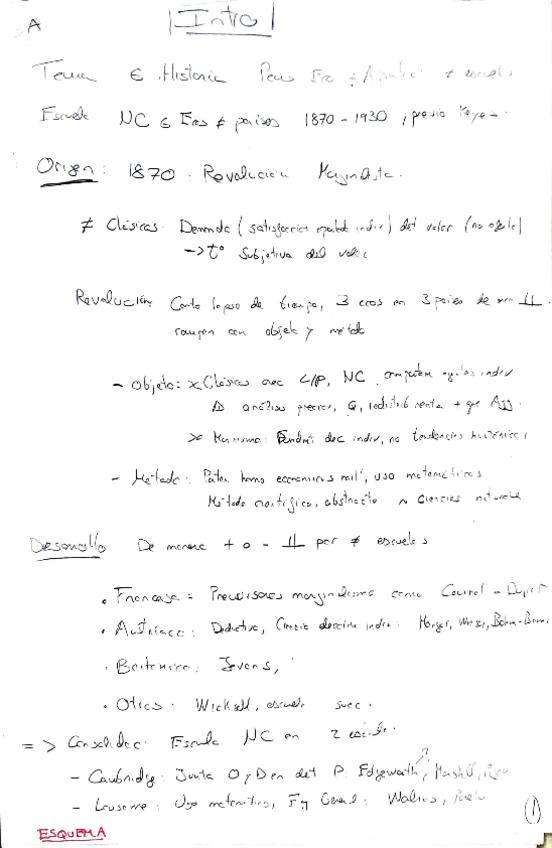 A
Intro
Tema ∈ Historia Pens Eco ≠ escuelas
Escuela NC ≠ países 1870 - 1930, previo Keynes.
Origen: 1870. Revolución Marginalista.
≠ Clásicos. Demanda (satisfacción indiv) det valor (no oferta)
→ tº Subjetiva del valor
Revolución: Corto lapso de tiempo, 3 ecos en 3 países de man ⊥⊥.
rompen con objeto y método
- Objeto: x Clásicos crec L/P, NC indiv
Δ análisis precios, Q, redistrib renta + que Agg.
x Marxismo: dec indiv, no tendencias históricas
- Método: homo economicus, uso matemáticas
Método científico, abstracto ~ Ciencias naturales
Desarrollo De manera + o - ⊥⊥ por ≠ escuelas
• Francesa = Precursores marginalismo como Cournot - Dupuit
• Austriaca: Deductiva, Ciencia decisión indiv: Menger, Wieser, Böhm-Bawerk
• Británica: Jevons,
• Otros: Wicksell, escuela suec.
=> Consolidac. Escuela NC en 2 escuelas.
- Cambridge: Junta O y Den det P. Edgeworth, Marshall, Pigou
- Lausana: Uso matemático, Eq General: Walras, Pareto
1
ESQUEMA